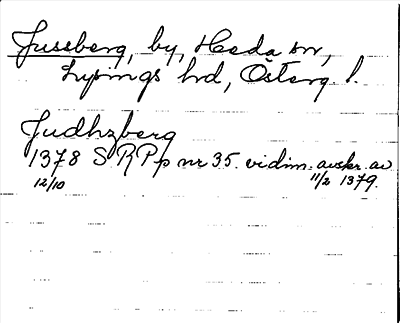 Jussberg, by, Heda sn,
Lysings hd, Österg. l.
Judhzberg
1378 SRPp nr 35. vidim. avskr. av
12/10 11/2 1379.